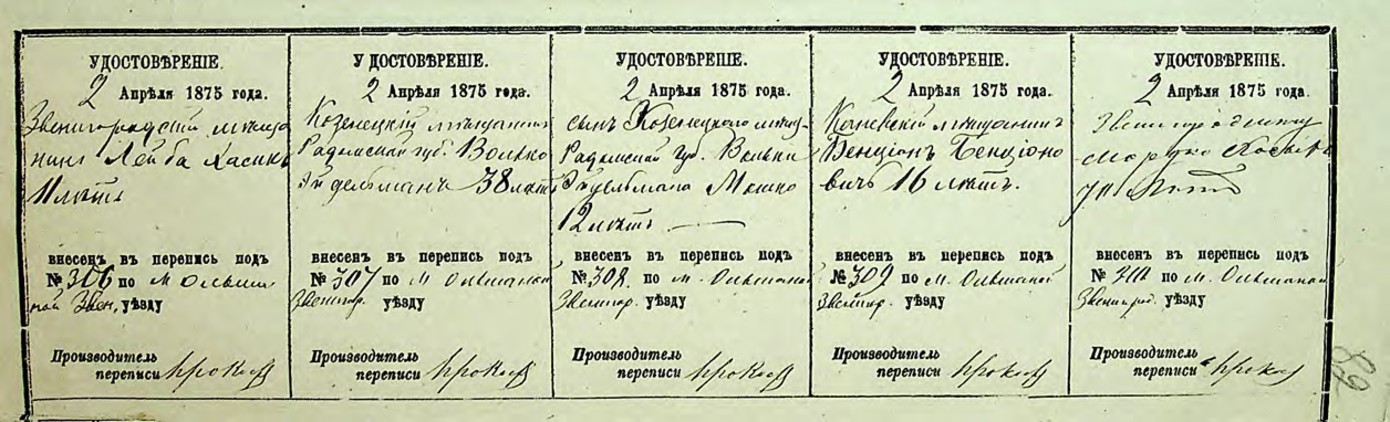 УДОСТОВѢРЕНІЕ.
2 Апрѣля 1875 года.
Звенигородскій мѣща
нинъ Лейба
лѣтъ
внесенъ въ перепись подъ
№ 306 по м Ольша
ной Звен. уѣзду
Производитель
переписи
УДОСТОВѢРЕНІЕ.
2 Апрѣля 1875 года.
Козенецкій мѣщанинъ
Радомской губ. Волько
Эйдельманъ 38 лѣтъ
внесенъ въ перепись подъ
№ 307 по м. Ольшаной
Звенигор. уѣзду
Производитель
переписи
УДОСТОВѢРЕНІЕ.
2 Апрѣля 1875 года.
сынъ Козенецкаго мѣщ-
Радомской губ. Вольки
Эйдельмана Мошко
12 лѣтъ
внесенъ въ перепись подъ
№ 308 по м. Ольшаной
Звенигор. уѣзду
Производитель
переписи
УДОСТОВѢРЕНІЕ.
2 Апрѣля 1875 года.
Каневскій мѣщанинъ
Бенціонъ Бенціоно
вичъ 16 лѣтъ.
внесенъ въ перепись подъ
№ 309 по м. Ольшаной
Звенигор. уѣзду
Производитель
переписи
УДОСТОВѢРЕНІЕ.
2 Апрѣля 1875 года.
Мордко
внесенъ въ перепись подъ
№ по м. Ольшаной
Звенигород. уѣзду
Производитель
переписи